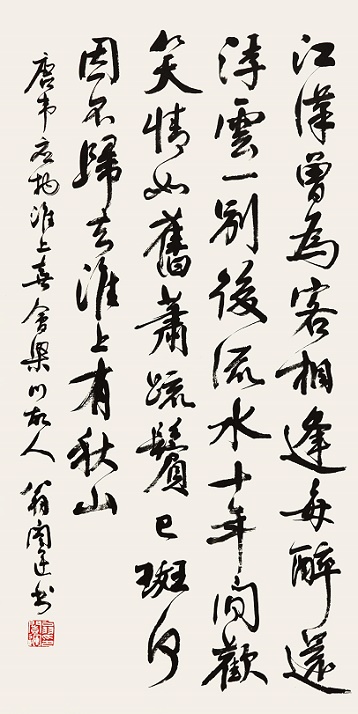 江漢曾為客相逢每醉還
浮雲一別後流水十年間歡
笑情如舊蕭疏鬢已斑何
因不歸去淮上有秋山
唐韋应物淮上喜會梁川故人 翁闿运书